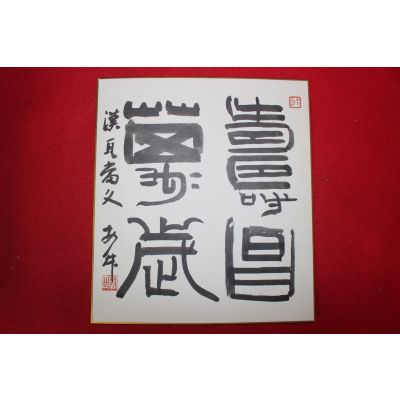 壽昌
萬歲
漢瓦當文